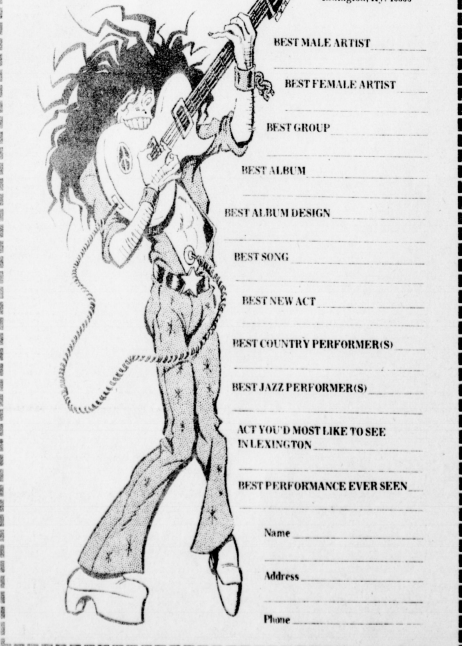 BEST MALE ARTIST
BEST FEMALE ARTIST
BEST GROUP
BEST ALBUM
BEST ALBUM DESIGN
BEST SONG
BEST NEW ACT
BEST COUNTRY PERFORMER(S)
BEST JAZZ PERFORMER(S)
ACT YOU'D MOST LIKE TO SEE
IN LEXINGTON
BEST PERFORMANCE EVER SEEN
Name
Address
Phone